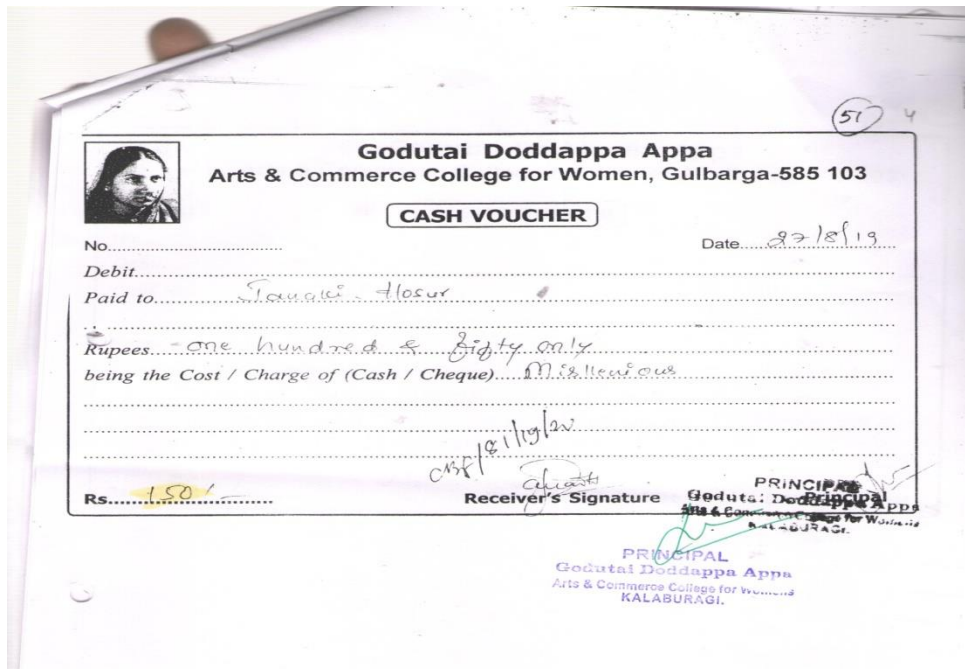 51 4
Godutai Doddappa Appa
Arts & Commerce College for Women, Gulbarga-585 103
CASH VOUCHER
No............................... Date 27/8/19
Debit
Paid to Janaki. Hosur
Rupees one hundred & fifty only
being the Cost / Charge of (Cash / Cheque) Misllenious
CBF/81/19/20
Rs. 150/-
Receiver's Signature
Principal
PRINCIPAL
Godutai Doddappa Appa
Arts & Commerce College for Womens
KALABURAGI.
PRINCIPAL
Godutai Doddappa Appa
Arts & Commerce College for Womens
KALABURAGI.